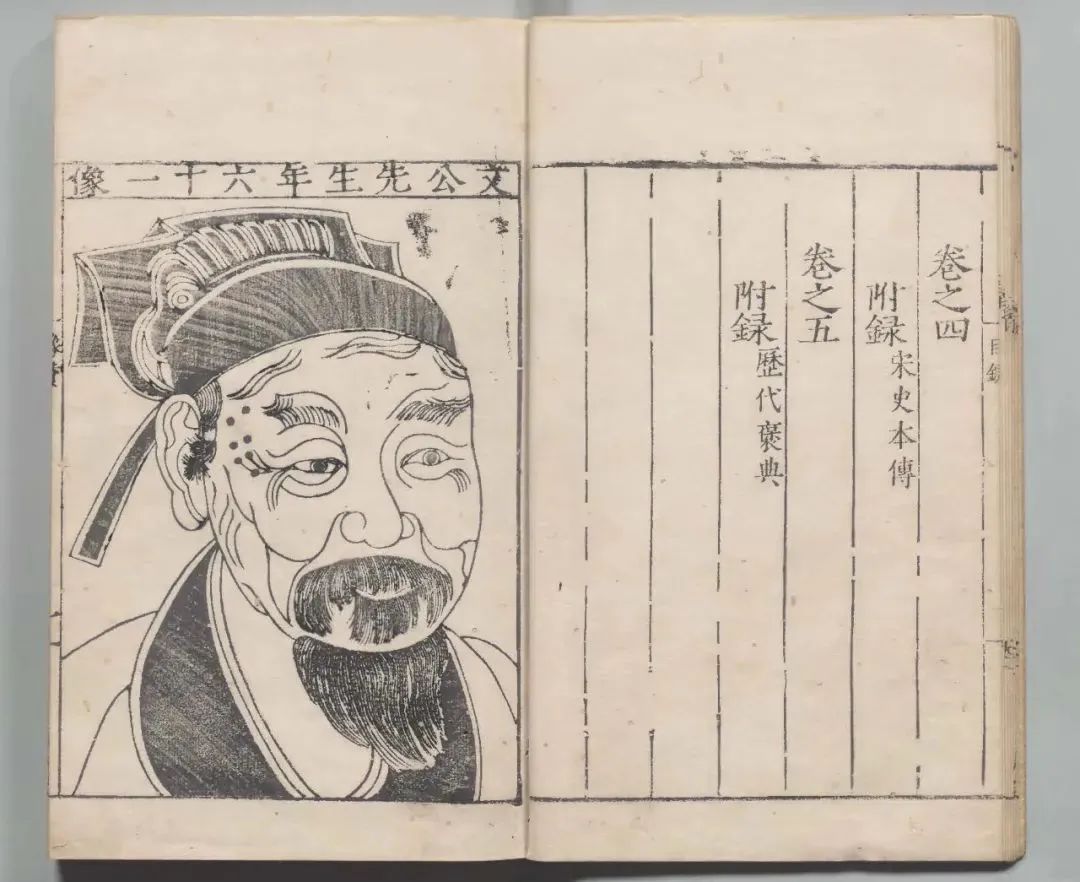 卷之四
附録宋史本傳
卷之五
附録歷代褒典
文公先生年六十一像